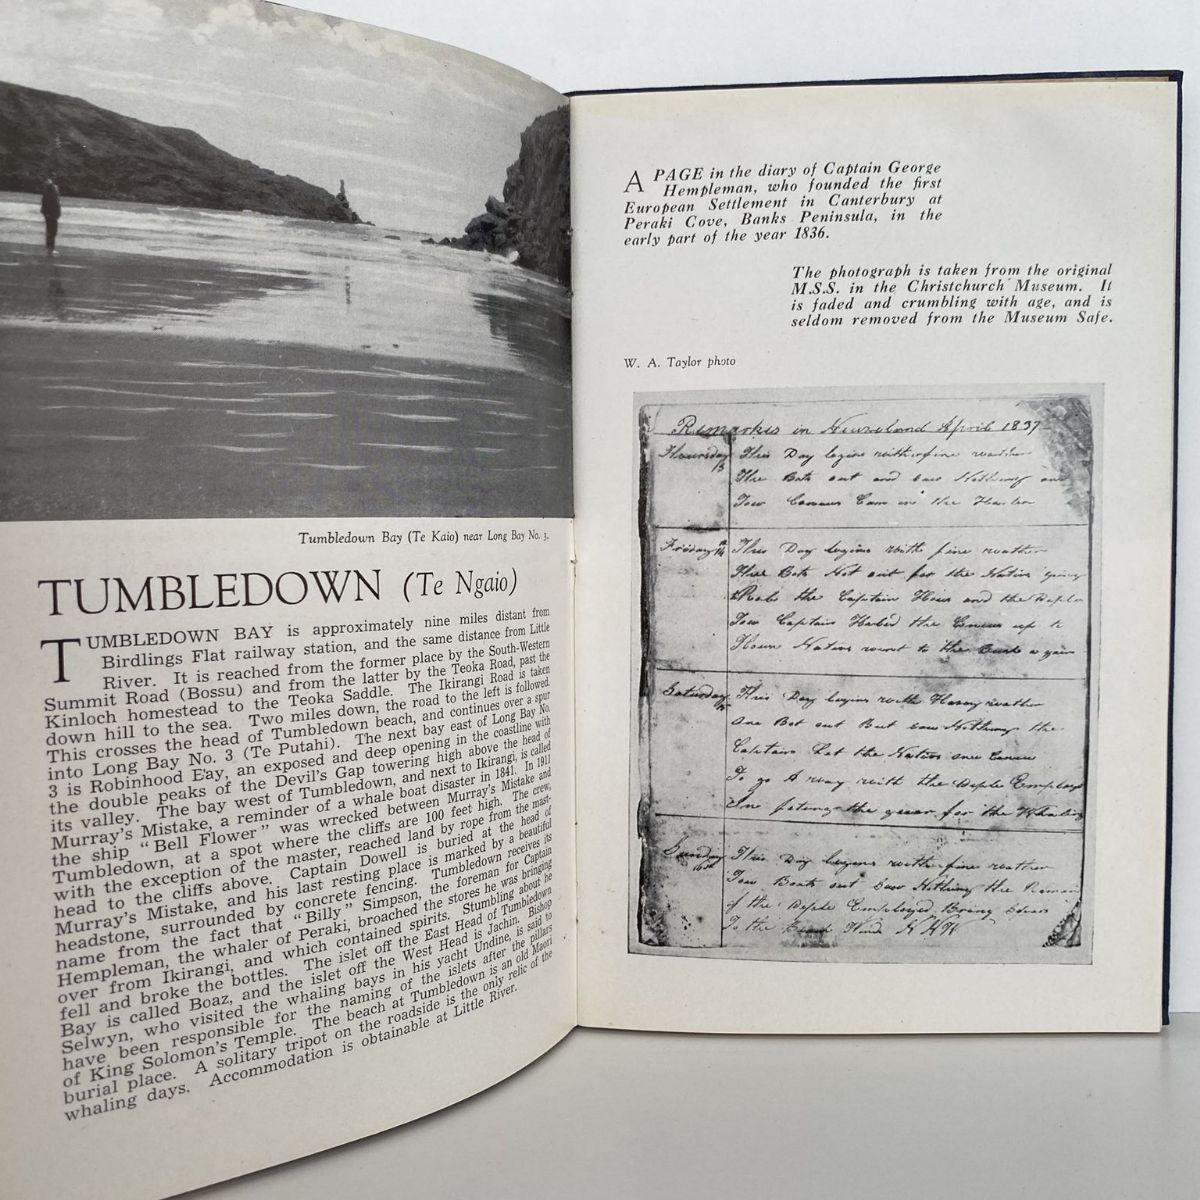 Tumbledown Bay (Te Kaio) near Long Bay No. 3.
TUMBLEDOWN (Te Ngaio)
TUMBLEDOWN BAY is approximately nine miles distant from
Birdlings Flat railway station, and the same distance from Little
River. It is reached from the former place by the South-Western
Summit Road (Bossu) and from the latter by the Teoka Road, past the
Kinloch homestead to the Teoka Saddle. The Ikirangi Road is taken
down hill to the sea. Two miles down, the road to the left is followed.
This crosses the head of Tumbledown beach, and continues over a spur
into Long Bay No. 3 (Te Putahi). The next bay east of Long Bay No.
3 is Robinhood Eay, an exposed and deep opening in the coastline with
the double peaks of the Devil's Gap towering high above the head of
its valley. The bay west of Tumbledown, and next to Ikirangi, is called
Murray's Mistake, a reminder of a whale boat disaster in 1841. In 1911
the ship "Bell Flower" was wrecked between Murray's Mistake and
Tumbledown, at a spot where the cliffs are 100 feet high. The crew,
with the exception of the master, reached land by rope from the mast-
head to the cliffs above. Captain Dowell is buried at the head of
Murray's Mistake, and his last resting place is marked by a beautiful
headstone, surrounded by concrete fencing. Tumbledown receives its
name from the fact that "Billy" Simpson, the foreman for Captain
Hempleman, the whaler of Peraki, broached the stores he was bringing
over from Ikirangi, and which contained spirits. Stumbling about he
fell and broke the bottles. The islet off the East Head of Tumbledown
Bay is called Boaz, and the islet off the West Head is Jachin. Bishop
Selwyn, who visited the whaling bays in his yacht Undine, is said to
have been responsible for the naming of the islets after the pillars
of King Solomon's Temple. The beach at Tumbledown is an old Maori
burial place. A solitary tripot on the roadside is the only relic of the
whaling days. Accommodation is obtainable at Little River.
A PAGE in the diary of Captain George
Hempleman, who founded the first
European Settlement in Canterbury at
Peraki Cove, Banks Peninsula, in the
early part of the year 1836.
The photograph is taken from the original
M.S.S. in the Christchurch Museum. It
is faded and crumbling with age, and is
seldom removed from the Museum Safe.
W. A. Taylor photo
Remarks in Newzeland April 1837
Thursday 13 This Day begins with fine weather
The Bots out and saw Nothing and
Tow Canues Cam in the Harber
Friday 14 This Day begins with fine weather
The Bots Not out for the Nativs
the Captain Hous and the
Tow Captain the Canues up
Nativs went to the again
Saturday 15 This Day begins with weather
one Bot out But saw Nothing the
Captain the Nativs one Canue
To go A way with the Employed
the for the Whaling
Sunday 16 This Day begins with fine weather
Tow Boats out Saw Nothing the
of the Employed
To the Wind